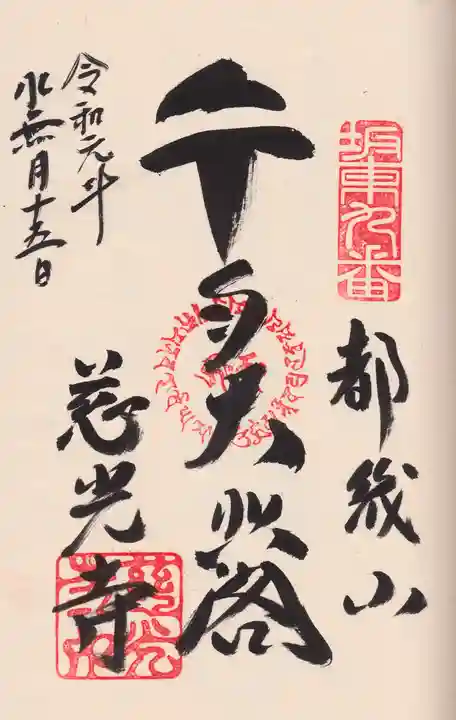 坂東九番
都幾山
千手大悲閣
慈光寺
令和元年
水無月十五日